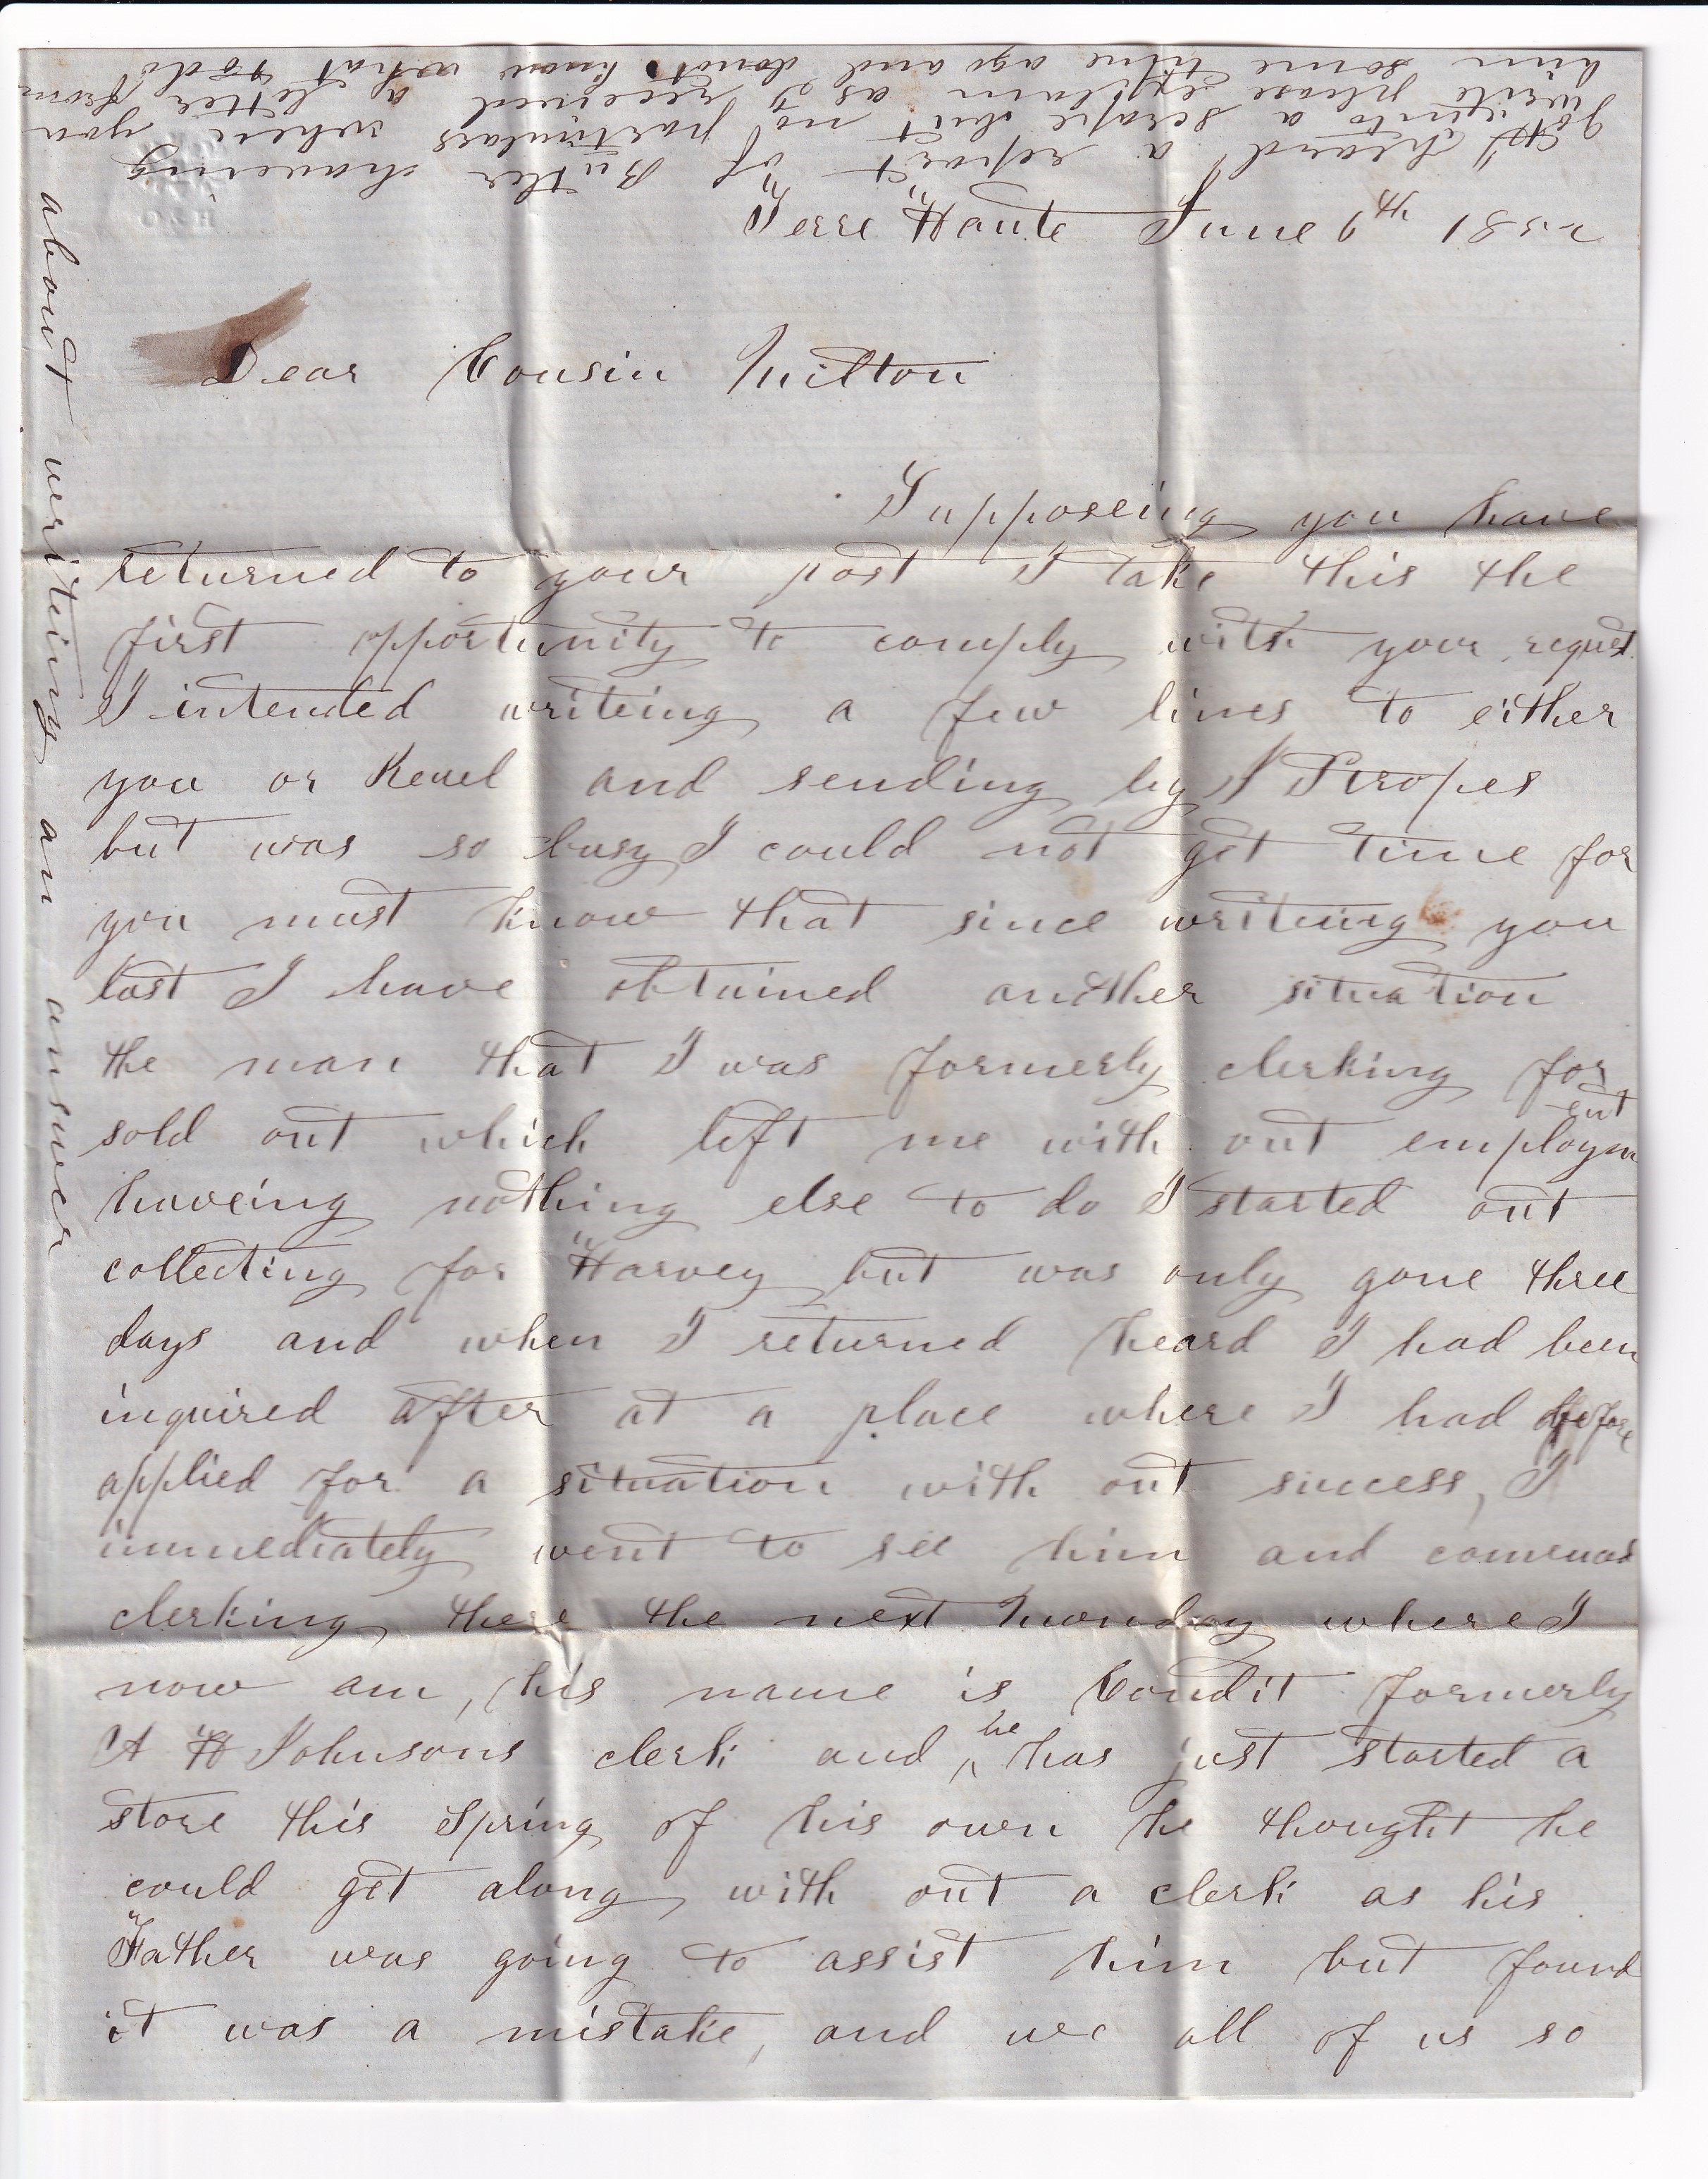 Terre Haute June 9th 1852
Dear Cousin Milton
Supposeing you have
returned to your post I take this the
first opportunity to comply with your request
I intended writeing a few lines to either
you or Reuel and sending by J Stropes
but was so busy I could not get time for
you must know that since writeing you
last I have obtained another situation
the man that I was formerly clerking for
sold out which left me with out employment
haveing nothing else to do I started out
collecting for Harvey but was only gone three
days and when I returned heard I had been
inquired after at a place where I had before
applied for a situation with out success, I
immediately went to see him and comenced
clerking there the next Monday where I
now am, his name is Condit formerly
A H Johnsons clerk and he has just started a
store this Spring of his own he thought he
could get along with out a clerk as his
Father was going to assist him but found
it was a mistake, and we all of us so
I heard a report of Butler haveing
got into a scrape but no particulars when you
write please explain as I received a letter from
him some time ago and dont know what to do
about writeing an answer